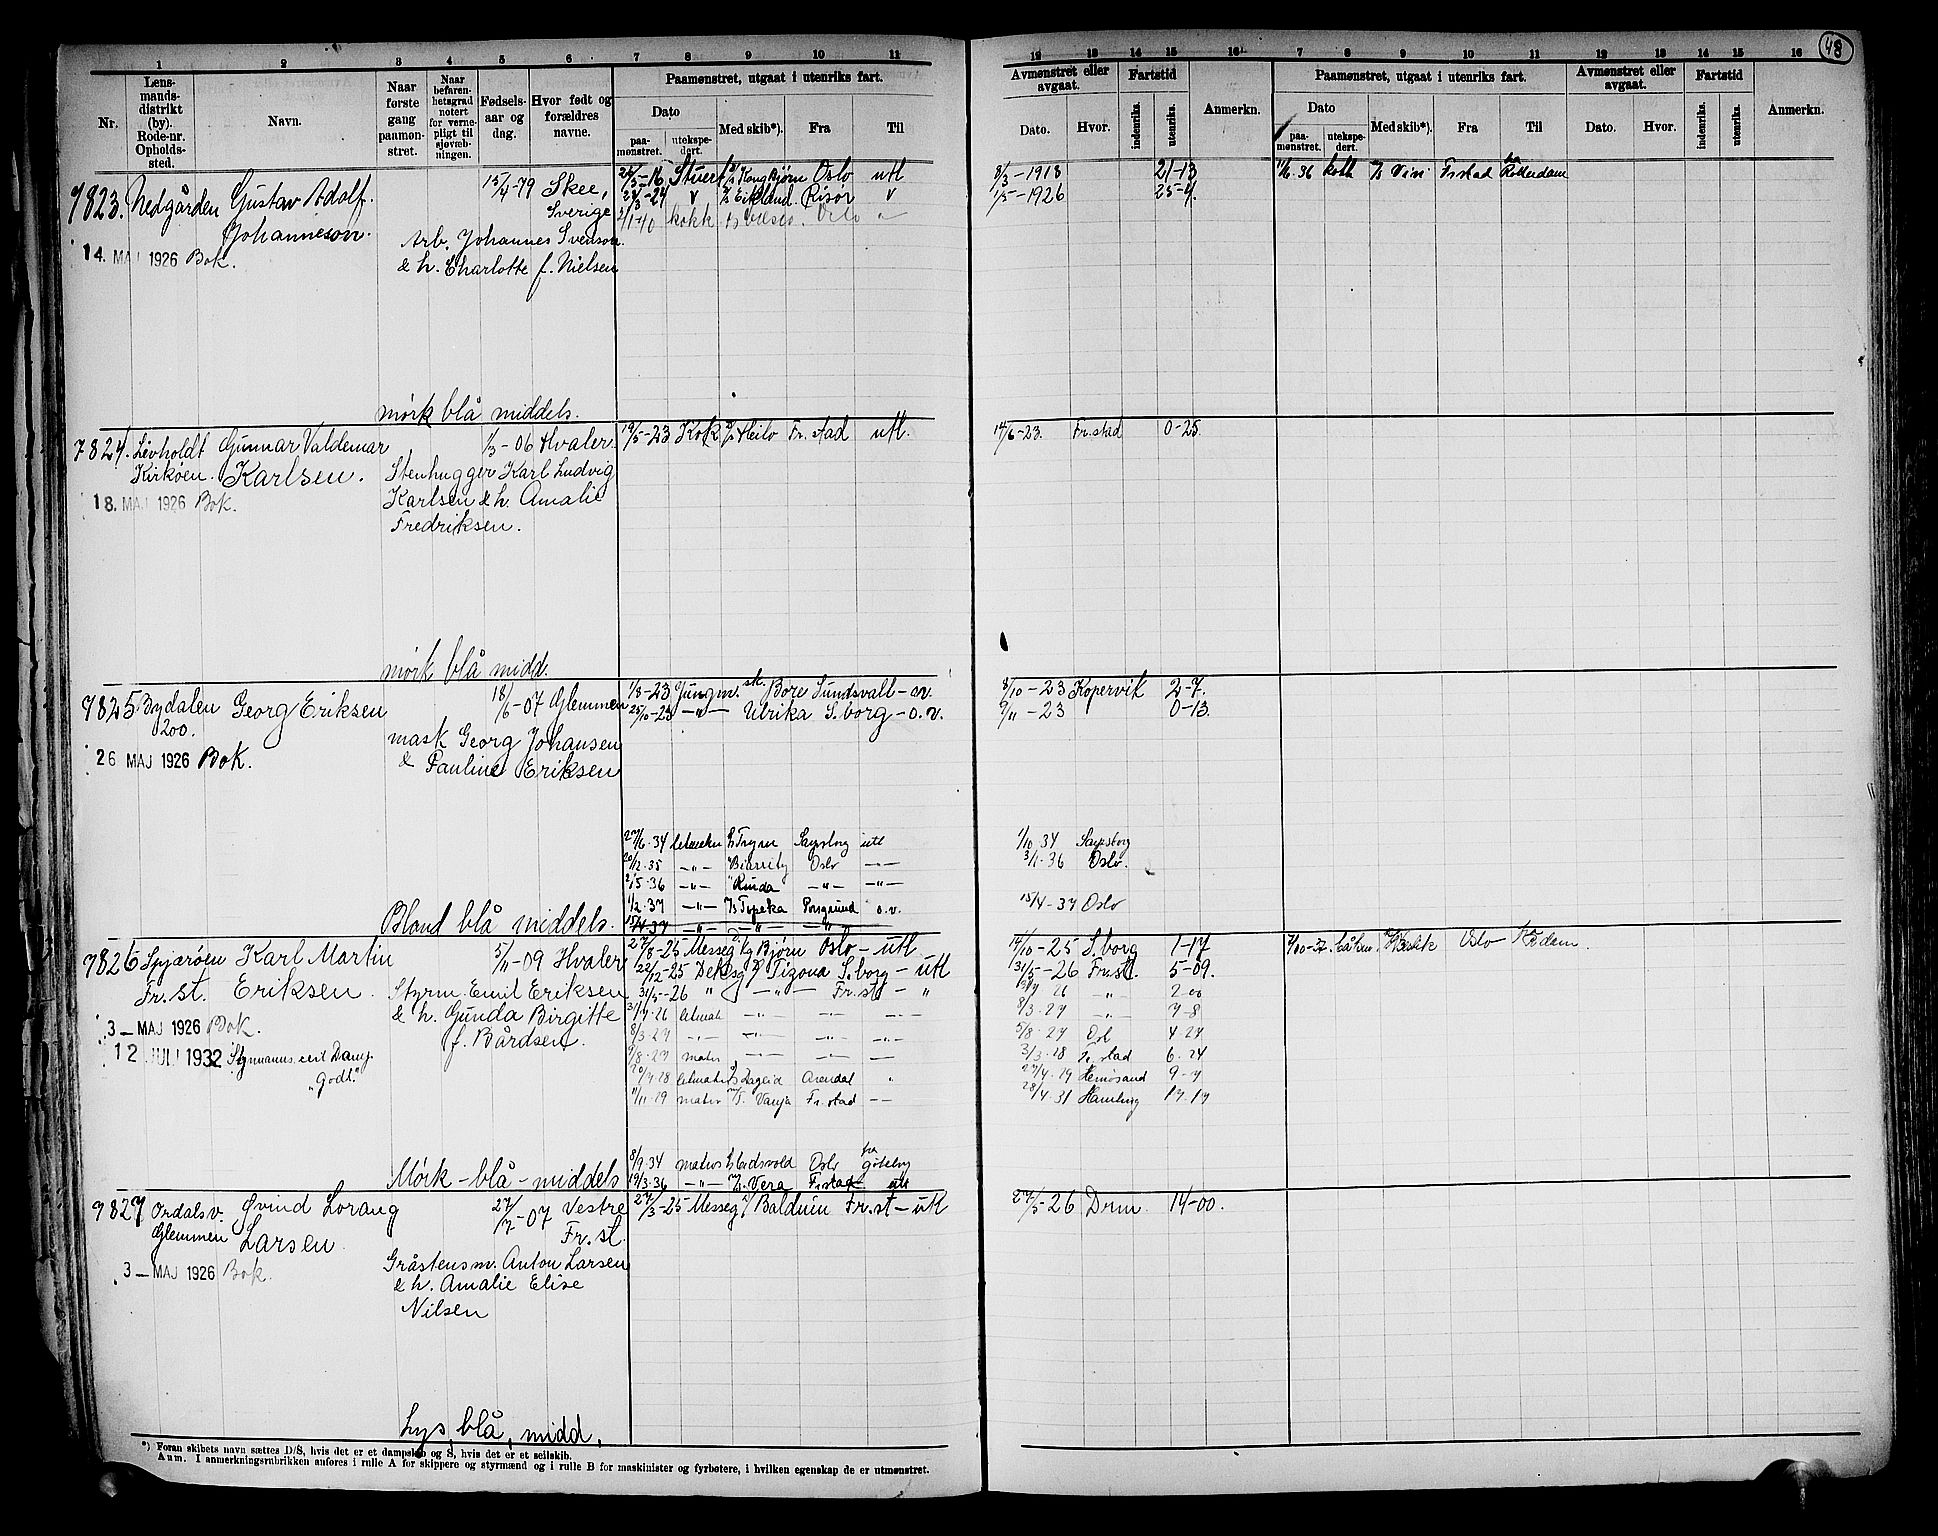 48
1 2 3 4 5 6 7 8 9 10 11
Nr. Lensmandsdistrikt (by). Rode-nr. Opholdssted. Navn. Naar første gang paamønstret. Naar befarenhetsgrad notert for vernepligt til sjøvæbningen. Fødselsaar og dag. Hvor født og forældres navne. Paamønstret, utgaat i utenriks fart.
Dato Med skib*). Fra Til
paamønstret. utekspedert.
7823. Nedgården Gustav Adolf 15/4-79 Skee, Stuert D/S Kong Bjørn Oslo utl
Johanneson. Sverige 24/3-24 v D/S Eiklund Risør v
2/1-40 kokk Oslo "
14. MAJ 1926 Bok. Arb. Johannes Svenson
& h. Charlotte f. Nielsen
mørk blå middels.
7824. Levholdt Gunnar Valdemar 1/3-06 Hvaler. 19/5-23 Kok D/S Heilo Fr.stad utl.
Kirkøen. Karlsen. Stenhugger Karl Ludvig
18. MAJ 1926 Bok. Karlsen & h. Amalie
Fredriksen.
mørk blå midd.
7825 Bydalen Georg Eriksen 18/6-07 Glemmen 1/8-23 Jungm. sk. Bore Sundsvall - o.v.
200. 25/10-23 -"- Ulrika S.borg - o.v.
mask Georg Johansen
26 MAJ 1926 Bok. & Pauline Eriksen
27/6.34 letmatr D/S Trym Sarpsborg utl
20/12.35 -"- Biarritz Oslo -"-
2/5.36 -"- " Rinda -"- -"-
1/2.37 -"- M/S Topeka Porsgrund o.v.
15/4.37 -"- -"- -"-
Blond blå middels.
7826 Spjærøen Karl Martin 5/11-09 Hvaler 27/8-25 Messeg D/S Kg Bjørn Oslo - utl
Fr.st. Eriksen. Styrm. Emil Eriksen 22/12-25 Deksg D/S Tizona S.borg - utl
& h. Gunda Birgitte 31/5-26 " -"- Fr.st - "
3 - MAJ 1926 Bok. f. Bårdsen. 31/7.26 letmatr -"- -"- -"-
12 JULI 1932 Styrmanns cert Damp. 8/3.27 -"- -"-
"Godt." 9/8.27 matr -"- -"- -"-
20/7.28 letmatr D/S Lageid Arendal "
11/11.29 matr M/T. Vanja Fr.stad -"-
8/9.34 matros D/S Eidsvold Oslo fra Göteborg
19/3.36 -"- D/S Vera Fr.stad utl
Mørk - blå - middels
7827 Ordalsv. Øvind Lorang 27/7-07 Vestre 27/3-25 Messeg D/S Balduin Fr.st - utl
Glemmen Larsen. Fr.st.
3 - MAJ 1926 Bok. Gråstensm. Anton Larsen
& h. Amalie Elise
Nilsen
Lys, blå, midd,
*) Foran skibets navn sættes D/S, hvis det er et dampskib og S, hvis det er et seilskib.
Anm. I anmerkningsrubrikken anføres i rulle A for skippere og styrmænd og i rulle B for maskinister og fyrbøtere, i hvilken egenskap de er utmønstret.
12 13 14 15 16 7 8 9 10 11 12 13 14 15 16
Avmønstret eller avgaat. Fartstid Anmerkn. Paamønstret, utgaat i utenriks fart. Avmønstret eller avgaat. Fartstid Anmerkn.
Dato. Hvor. indenriks. utenriks. Dato paamønstret. utekspedert. Med skib*). Fra Til Dato. Hvor. indenriks. utenriks.
8/3-1918 21-13 11/6.36 kokk Fr.stad fra Rotterdam
1/5-1926 25-4.
14/6-23. Fr.stad 0-25.
8/10-23 Kopervik 2-7.
9/11-23 0-13.
1/10.34 Sarpsborg
3/1-36 Oslo.
15/4-37 Oslo
14/10-25 S.borg 1-17 Oslo
31/5-26 Fr.st. 5-09.
-"- 2-00
8/3-27 -"- 7-8
5/8-27 Osl 4-27
3/3-28 Fr.stad 6.24
27/4.29 Hernösand
28/4.31 Hamburg 17.17
27/5-26 Drm. 14-00.